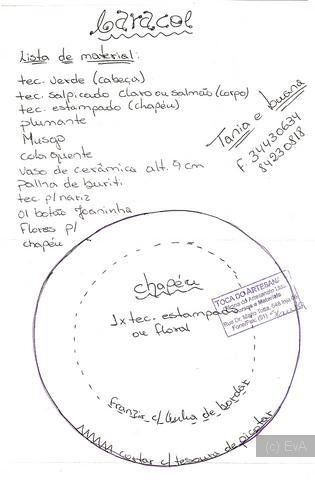 Caracol
Lista de material:
tec. verde (cabeça)
tec. salpicado claro ou salmão (corpo)
tec. estampado (chapéu)
plumante
Musgo
cola quente
vaso de cerâmica alt. 9 cm
palha de buriti
tec p/nariz
01 botão Joaninha
Flores p/
chapéu
Tania e Luana
F. 34430634
84230818
chapéu
1x tec. estampado
ou floral
TOCA DO ARTESAN
Franzir c/ linha de bordar
cortar c/ tesoura de picotar
(c) EvA